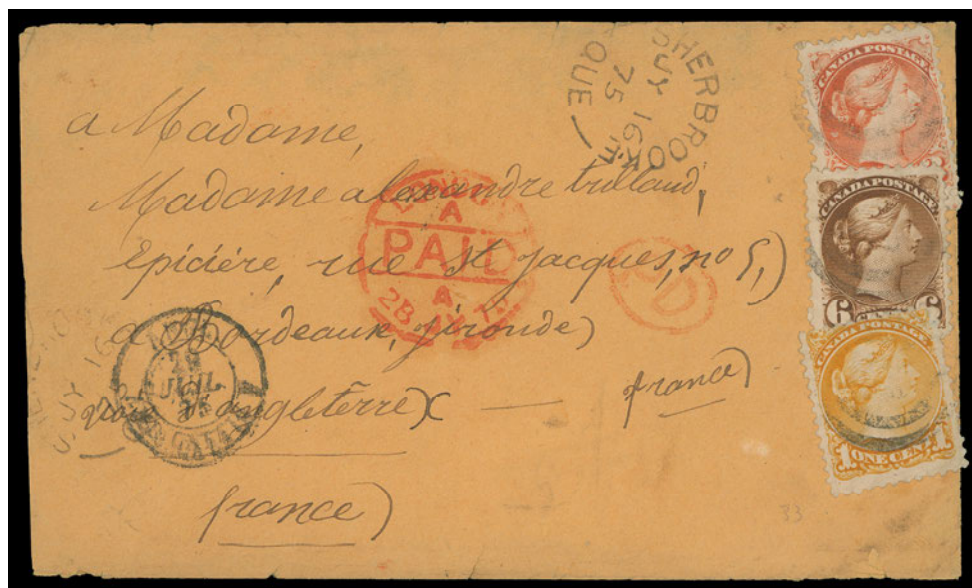 SHERBROOKE
JY 16
75
QUE
CANADA POSTAGE
CANADA POSTAGE
6 6
CANADA POSTAGE
1 ONE CENT 1
a Madame,
Madame alexandre
épiciére, rue st jacques, no 5,
a Bordeaux, gironde
voie d'angleterre — france
france
A
PAID
A
PD
JUIL
JY 16
33